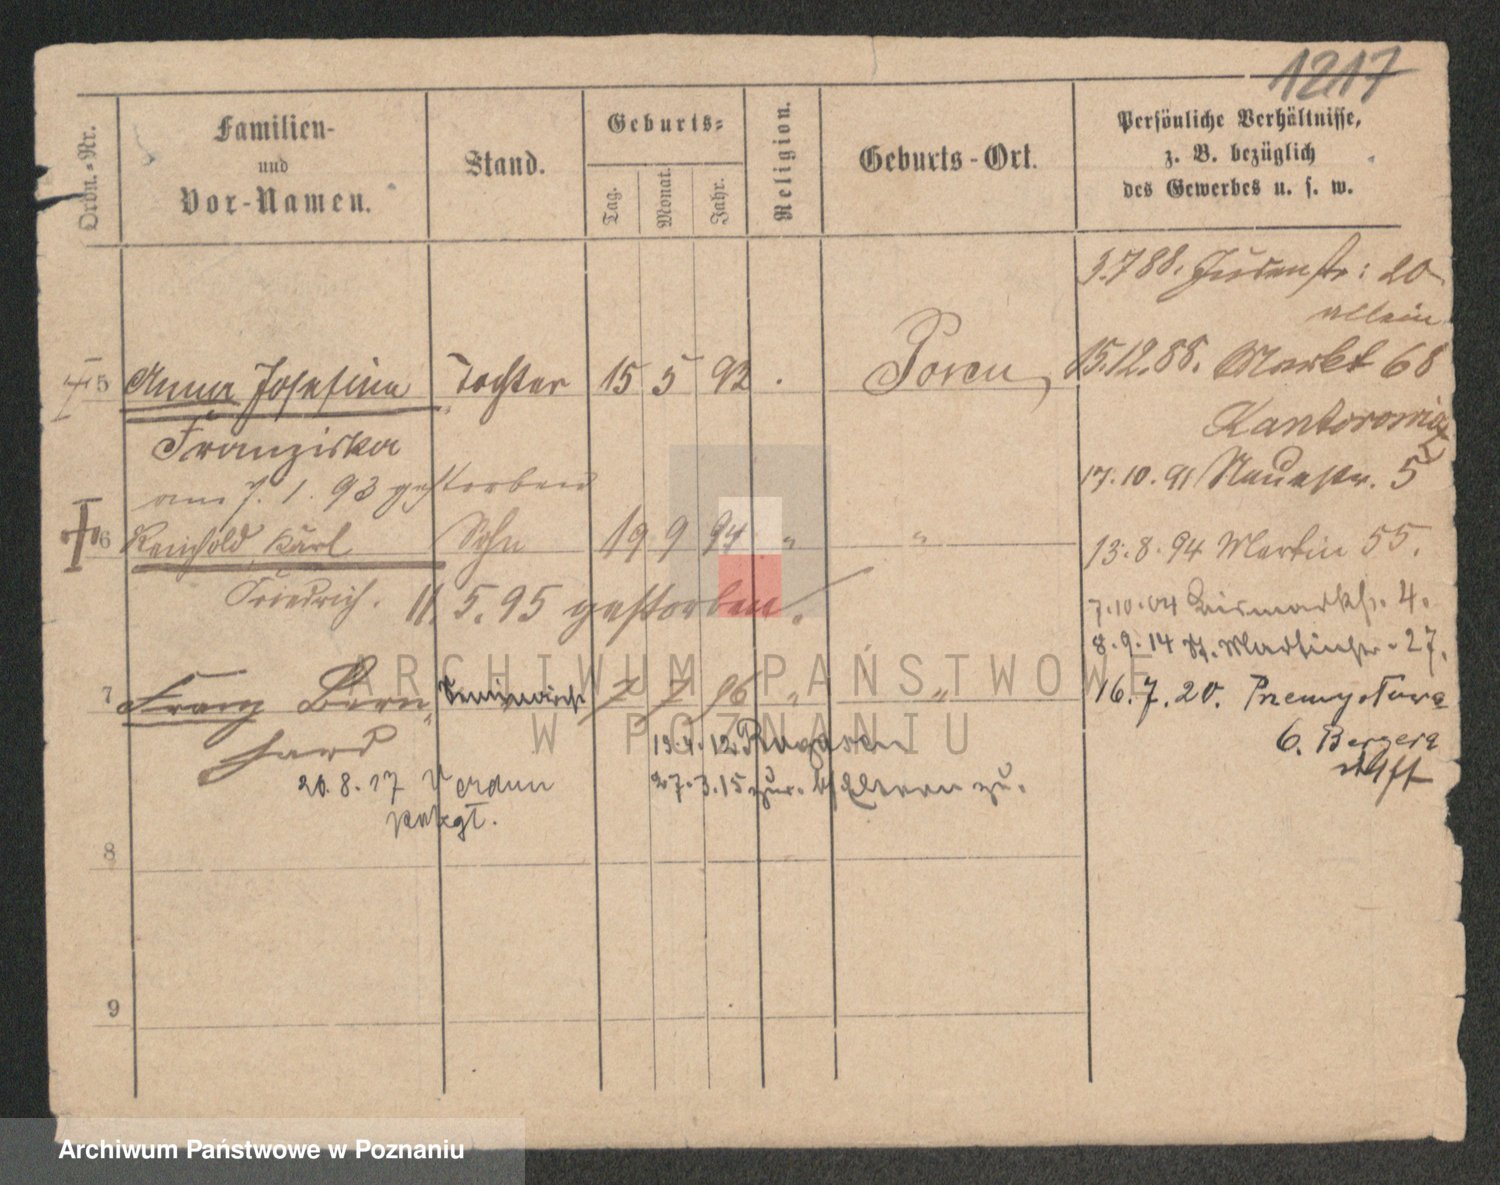 1217
Ordn.-Nr.
Familien-
und
Vor-Namen.
Stand.
Geburts-
Tag.
Monat.
Jahr.
Religion.
Geburts-Ort.
Persönliche Verhältnisse,
z. B. bezüglich
des Gewerbes u. s. w.
3.7 88. Judenstr: 20
allein
15.12.88. Markt 68
Kantorowicz
17.10.91 Neuestr. 5
13.8.94 Martin 55.
7.10.04 Bismarckstr. 4.
8.9.14 St. Martinstr. 27.
16.7.20. Przemysłowa
6. Bergera
5 Anna Josefina Tochter 15 5 92 . Posen
Franziska
am 7. 1. 93 gestorben
6 Reinhold Karl Sohn 19 9 94 " "
Friedrich. 11. 5. 95 gestorben.
7 Franz Bern- 7 7 96 " "
hard
13.4.12 Rogasen
27.3.15 zur. Eltern zu.
20.8.17 Verdun
8
9
ARCHIWUM PAŃSTWOWE
W POZNANIU
Archiwum Państwowe w Poznaniu